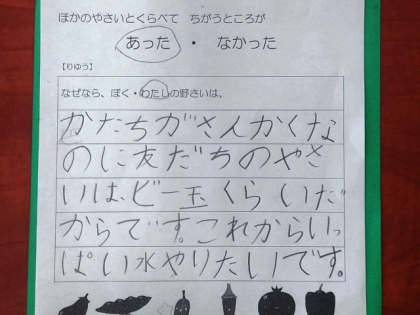 ほかのやさいとくらべて ちがうところが
あった ・ なかった
【りゆう】
なぜなら、ぼく・わたしの野さいは、
かたちがさんかくな
のに友だちのやさ
いは、ビー玉くらいだ
からです。これからいっ
ぱい水やりたいです。